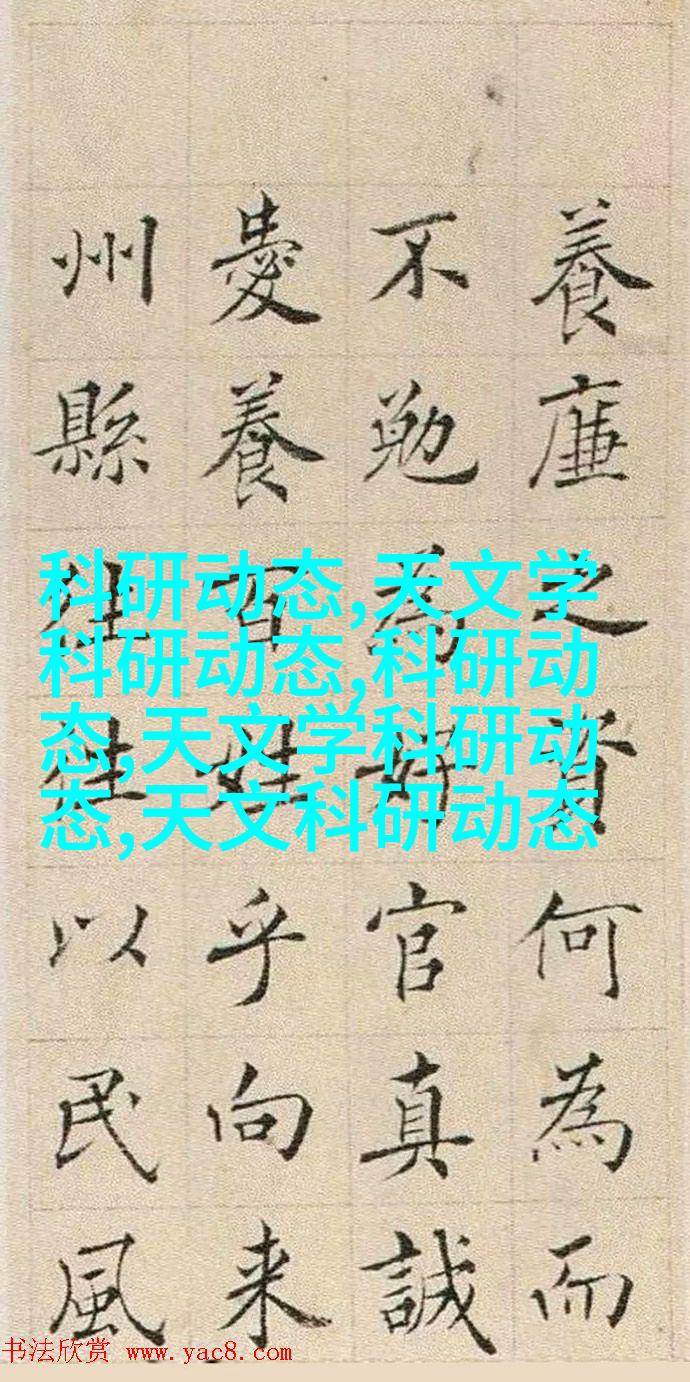 養廉之資何為而
不勉為好官真誠
愛養百姓乎向来
州縣往往以民風
科研动态,天文学
科研动态,科研动
态,天文学科研动
态,天文科研动态
书法欣赏 www.yac8.com